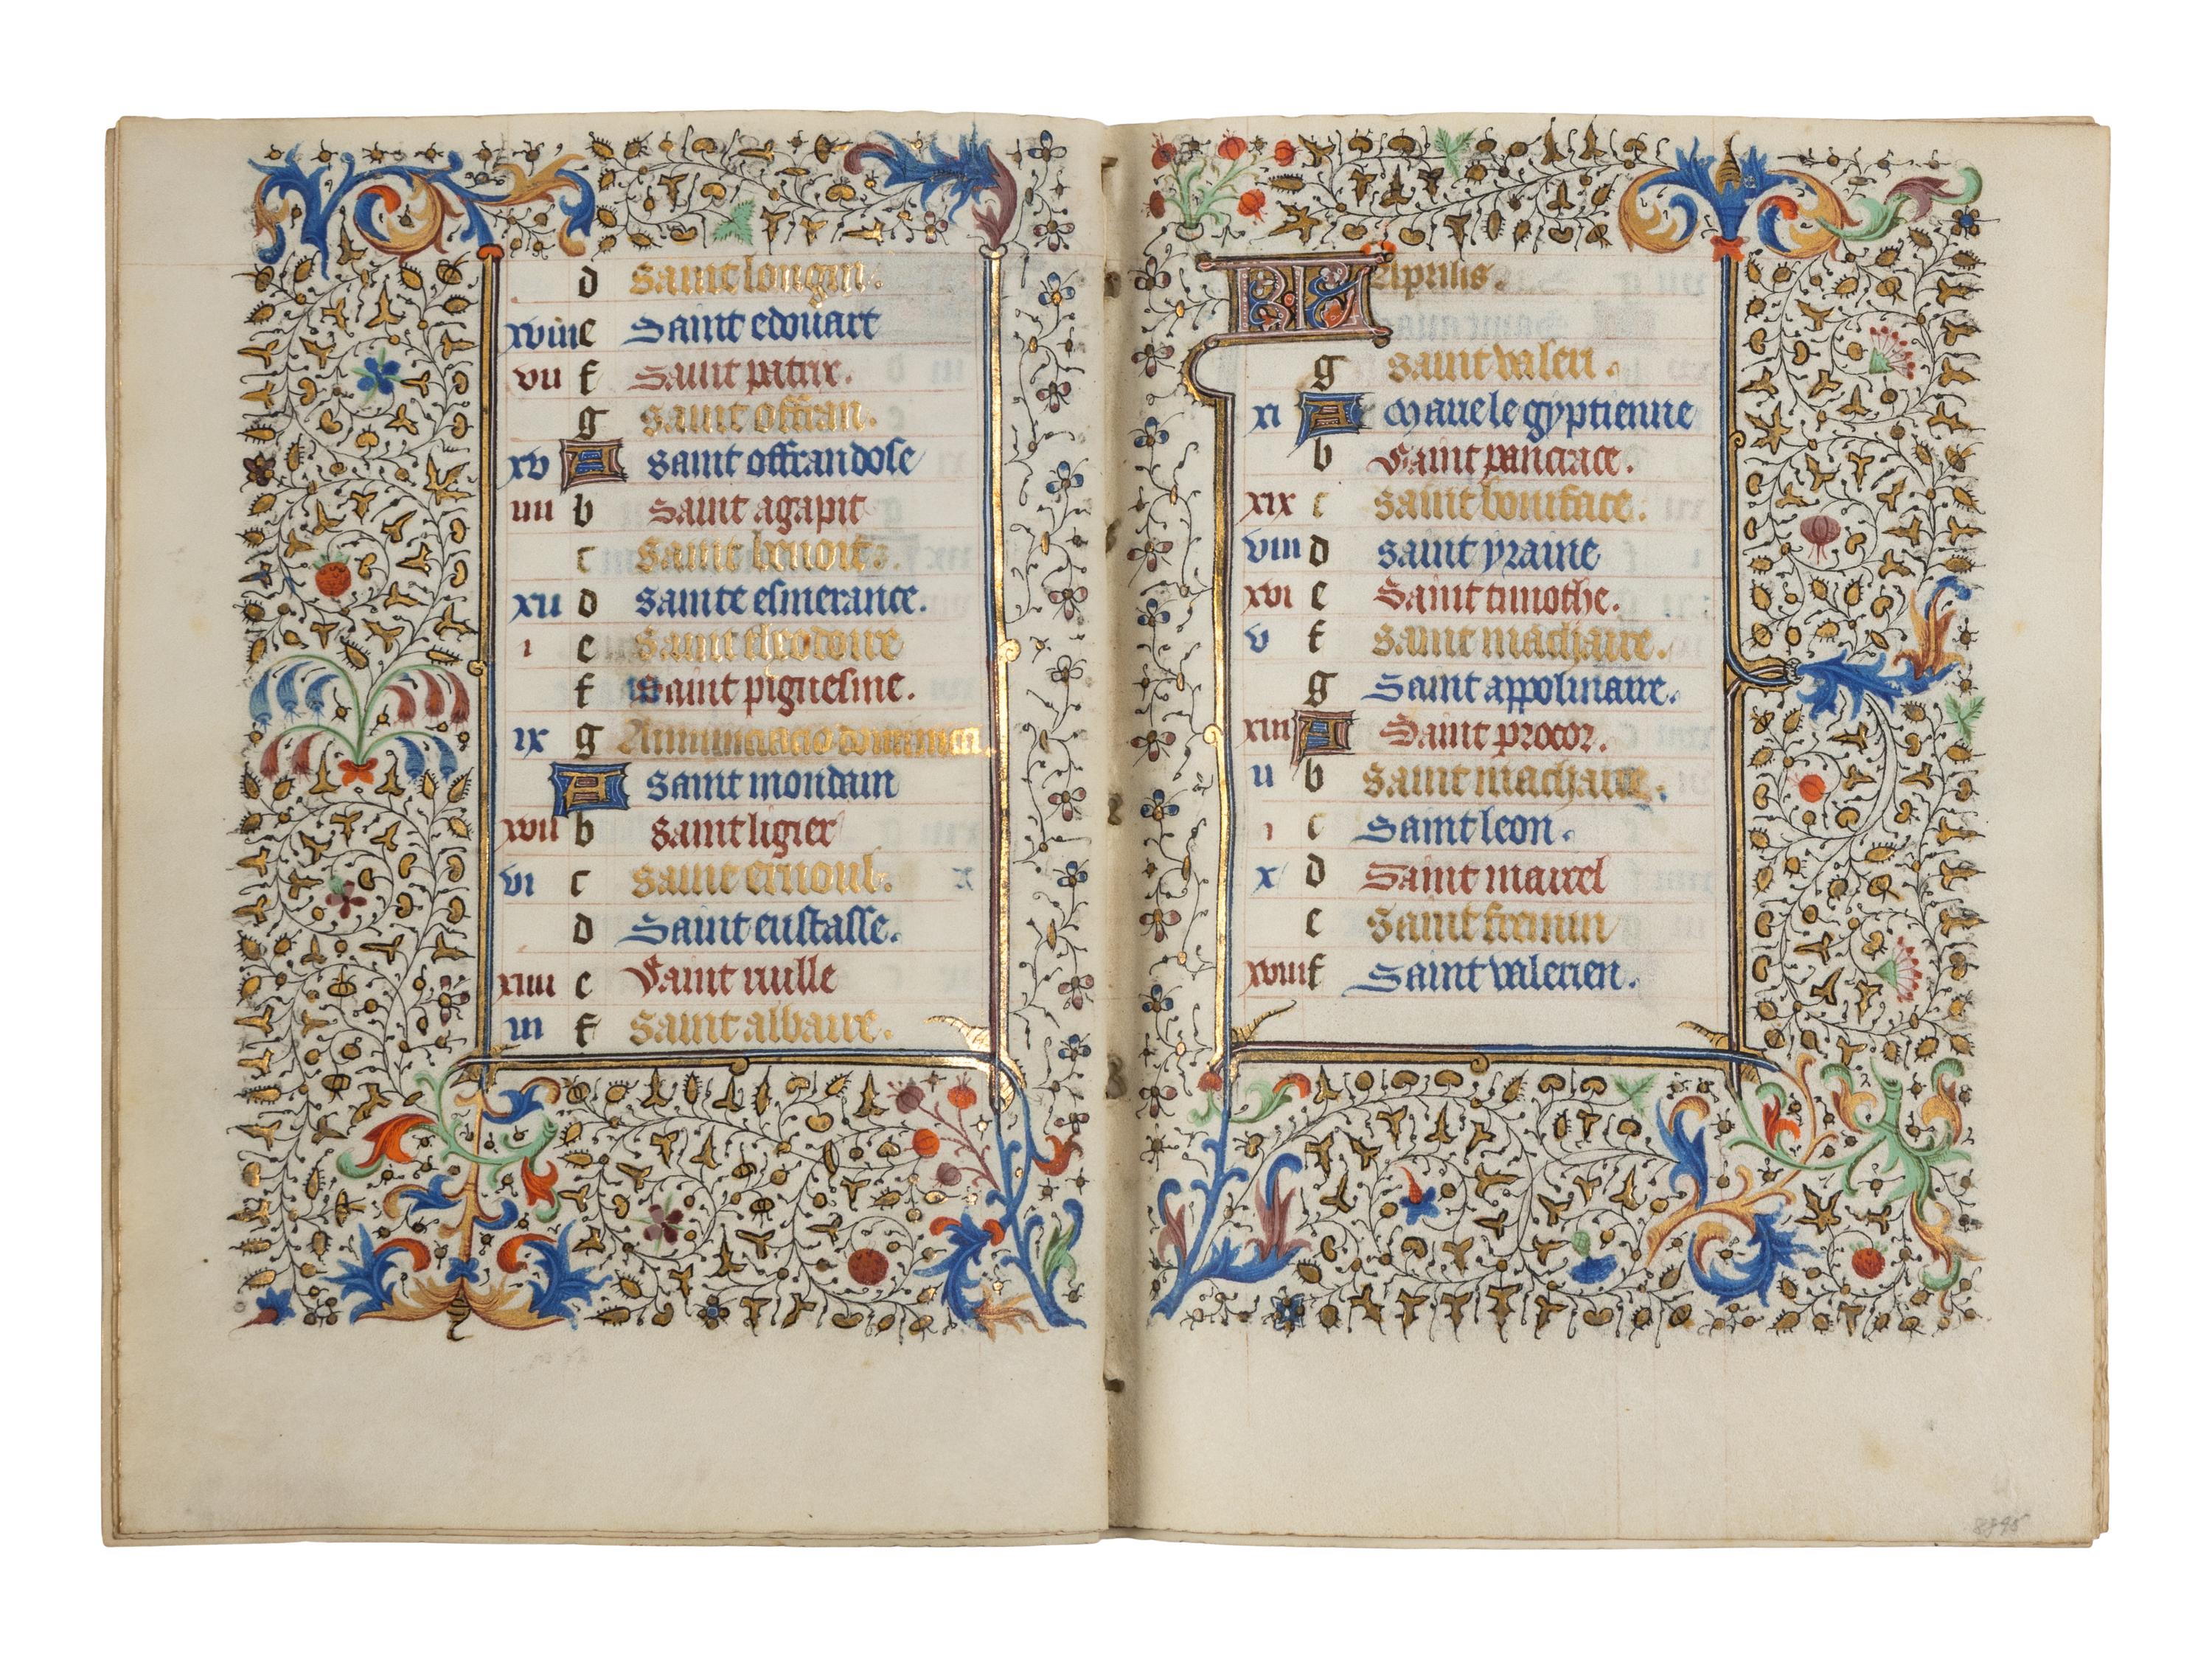 d Saint longin.
xviii e Saint edouart
vii f Saint patrix.
g Saint offran.
xv A Saint offrandose
iiii b Saint agapit
c Saint benoit.
xii d Sainte esmerance.
i e Saint theodoire
f Saint pignesme.
ix g Annunciacio dominica.
A Saint mondain
xvii b Saint ligier
vi c Saint ernoul.
d Saint eustasse.
xiiii e Saint rulle
iii f Saint albaire.
KL Aprilis.
g Saint valeri.
xi A Marie le gyptienne
b Saint pancrace.
xix c Saint boniface.
viii d Saint yraine
xvi e Saint timothe.
v f Saint machaire.
g Saint appolinaire.
xiii A Saint procor.
ii b Saint machaire.
c Saint leon.
x d Saint maircel
e Saint fremin
xviii f Saint valerien.